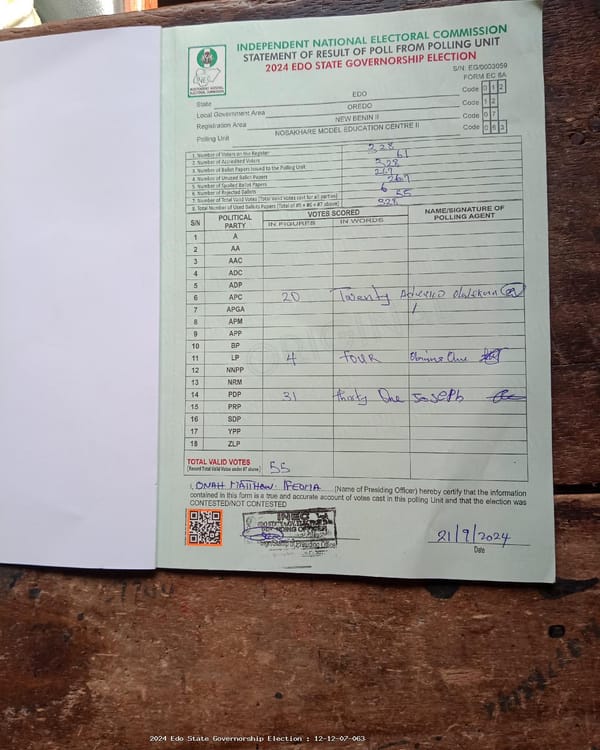 INDEPENDENT NATIONAL ELECTORAL COMMISSION
STATEMENT OF RESULT OF POLL FROM POLLING UNIT
2024 EDO STATE GOVERNORSHIP ELECTION
S/N: EG/0003059
FORM EC 8A
State EDO Code 0 1 2
Local Government Area OREDO Code 1 2
Registration Area NEW BENIN II Code 0 7
Polling Unit NOSAKHARE MODEL EDUCATION CENTRE II Code 0 6 3
1. Number of Voters on the Register 328
2. Number of Accredited Voters 61
3. Number of Ballot Papers Issued to the Polling Unit 328
4. Number of Unused Ballot Papers 267
5. Number of Spoiled Ballot Papers
6. Number of Rejected Ballots 6
7. Number of Total Valid Votes (Total Valid Votes cast for all parties) 55
8. Total Number of Used Ballots Papers (Total of #5 + #6 + #7 above)
S/N POLITICAL PARTY VOTES SCORED NAME/SIGNATURE OF POLLING AGENT
IN FIGURES IN WORDS
1 A
2 AA
3 AAC
4 ADC
5 ADP
6 APC 20 Twenty
7 APGA
8 APM
9 APP
10 BP
11 LP 4 four
12 NNPP
13 NRM
14 PDP 31 thirty One Joseph
15 PRP
16 SDP
17 YPP
18 ZLP
TOTAL VALID VOTES 55
(Record Total Valid Votes under #7 above)
I, ONAH MATTHEW IFEOMA (Name of Presiding Officer) hereby certify that the information
contained in this form is a true and accurate account of votes cast in this polling Unit and that the election was
CONTESTED/NOT CONTESTED
INEC
Signature of Presiding Officer
21/9/2024
Date
2024 Edo State Governorship Election : 12-12-07-063